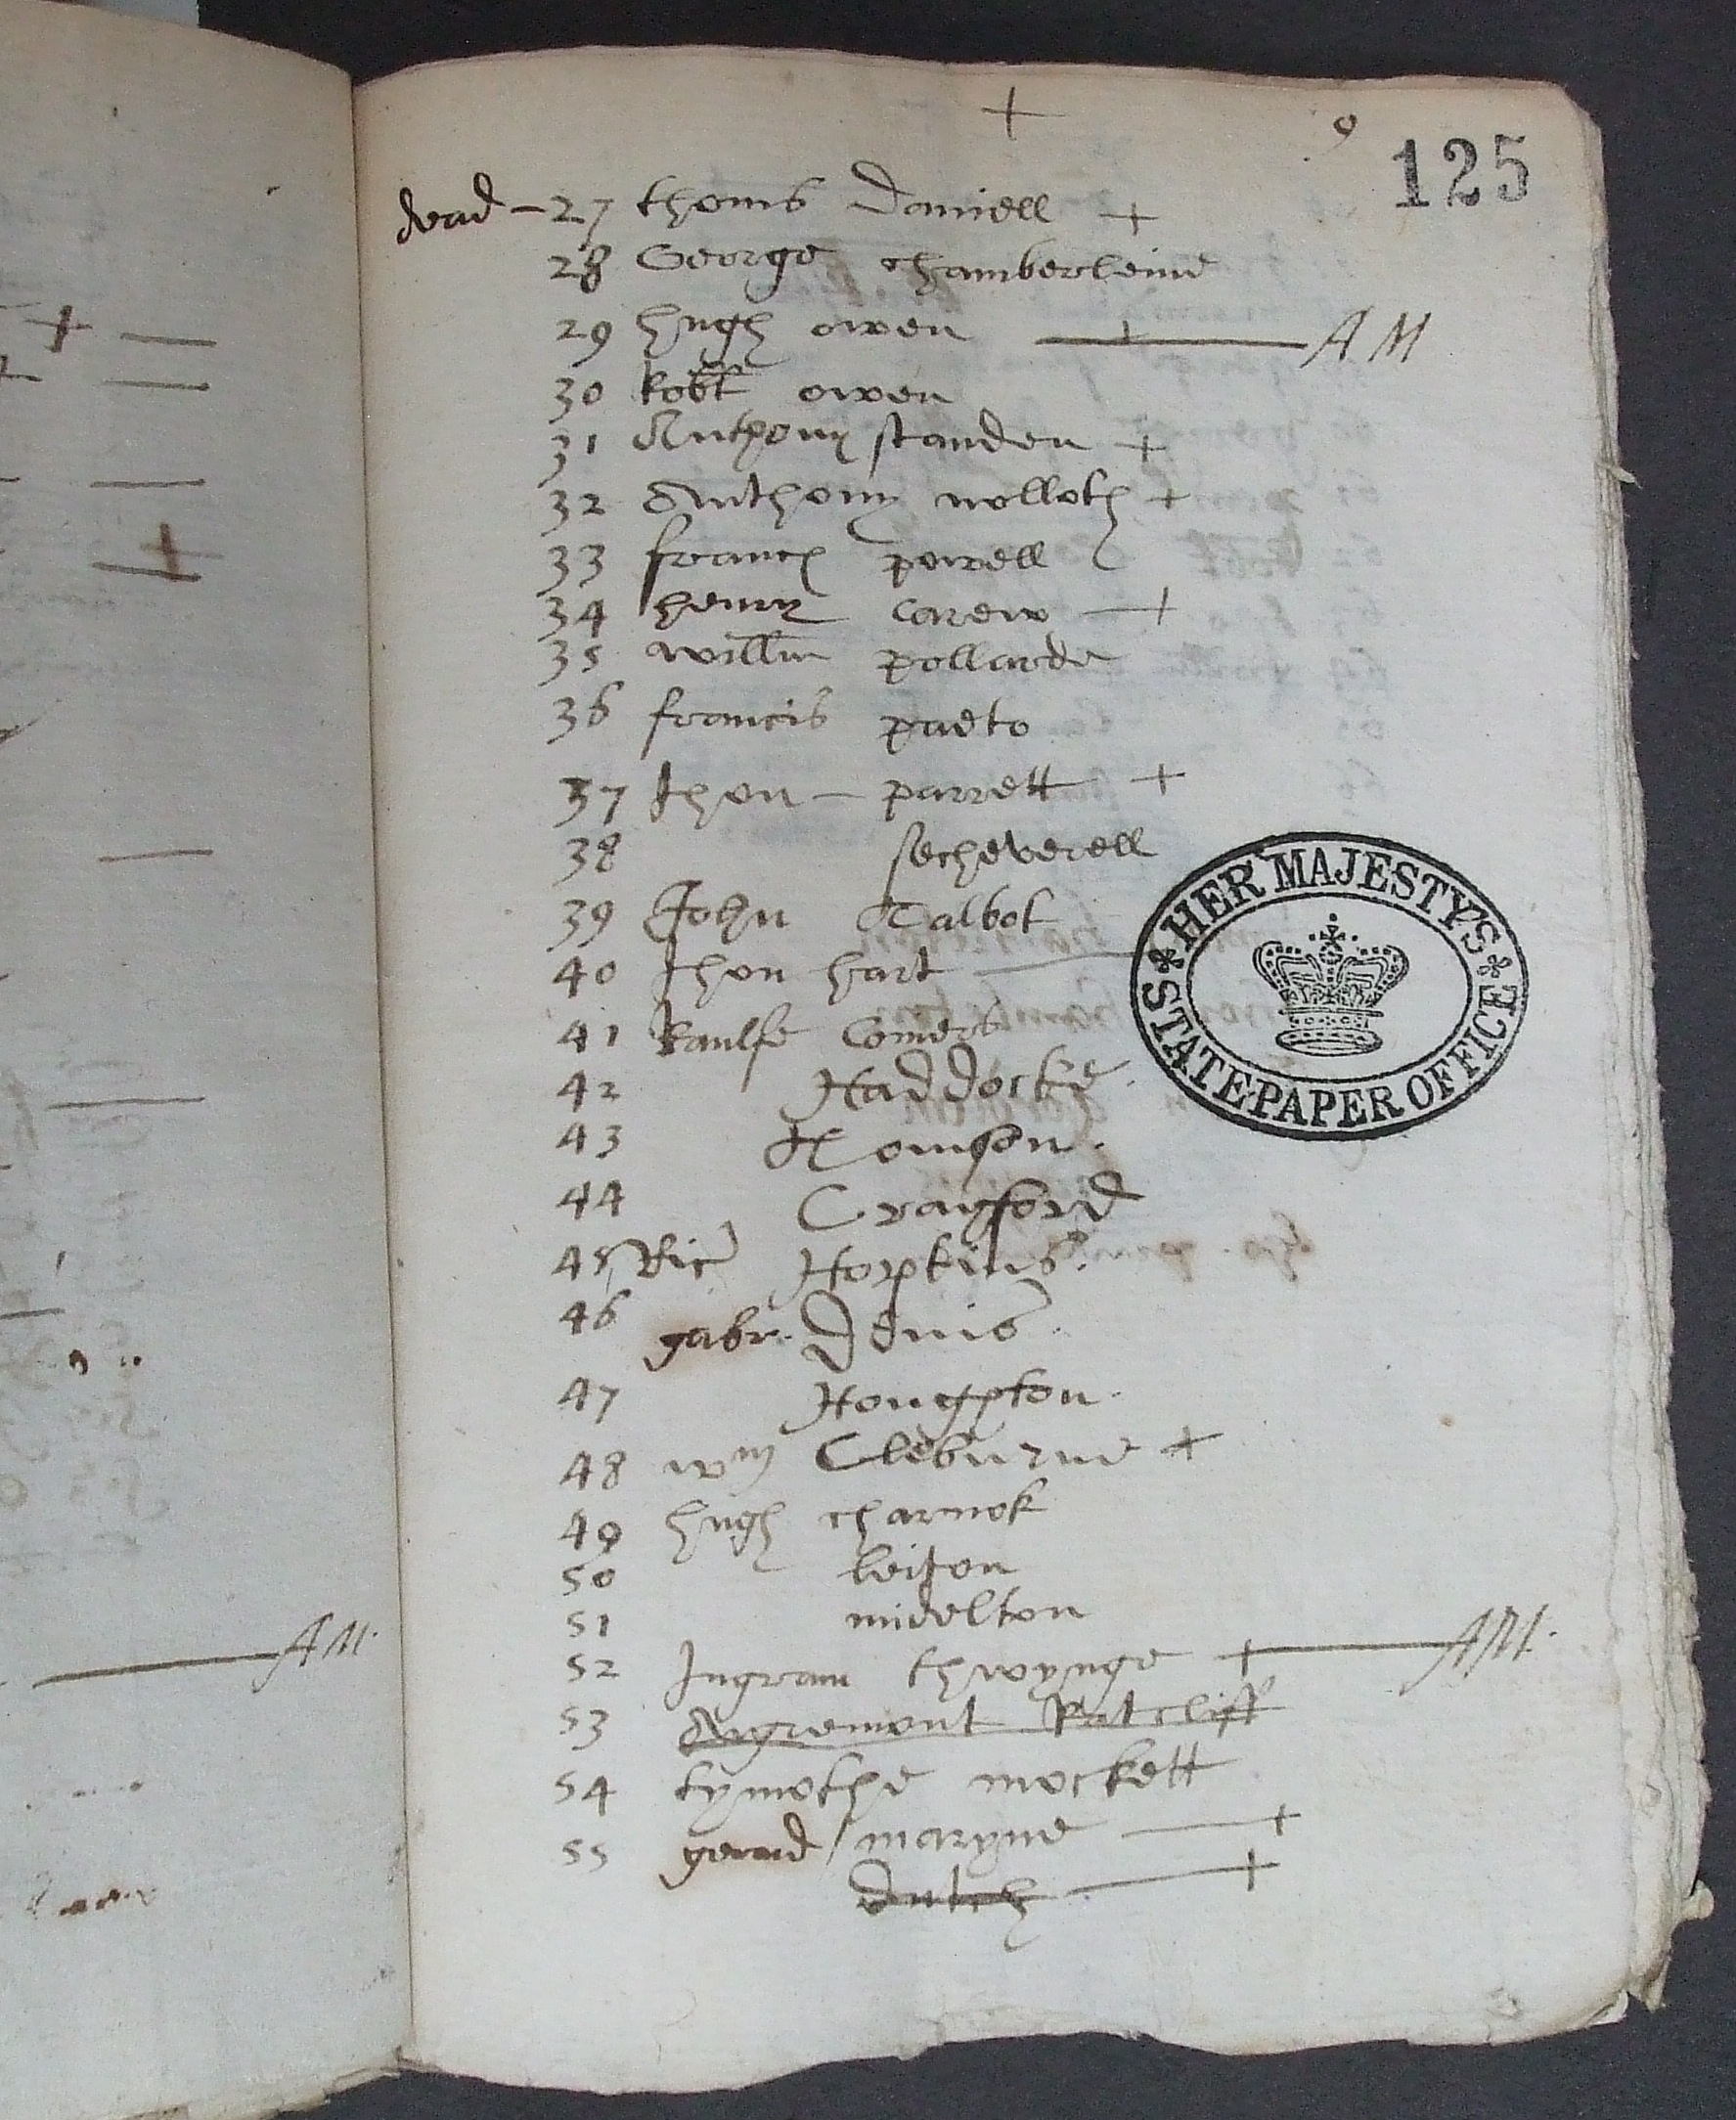 +
9
125
dead - 27 thoms Daniell +
28 George chamberleine
29 hugh owen + AM
30 Robt owen
31 Anthony standen +
32 Anthony nolloth +
33 franc powell
34 henry Carew +
35 willm pollarde
36 francis paeto
37 Jhon - parrett +
38 secheverell
39 John Talbot
40 Jhon hart
41 Raulfe Comers
42 Haddocke.
43
44 Crayford
45 Ric Hopkins.
46 gabr. Denis.
47 Houghton.
48 wm Cleburne +
49 hugh charnok
50
51 midelton
52 Ingram thwynge + AM.
53 Aygremont Ratcliff
54 tymothe mockett
55 gerard / maryne +
dutch +
HER MAJESTY'S
STATE PAPER OFFICE
AM.